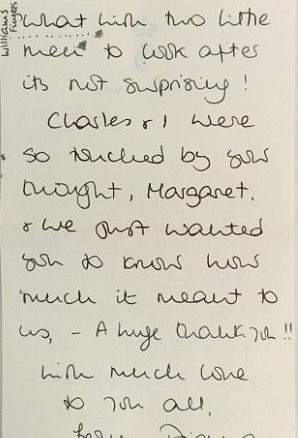 Williams
Fingers
What with two little
men to look after
its not surprising!
Charles & I were
so touched by your
thought, Margaret.
& we just wanted
you to know how
much it meant to
us, - A huge thank you!!
with much love
to you all,
from Diana